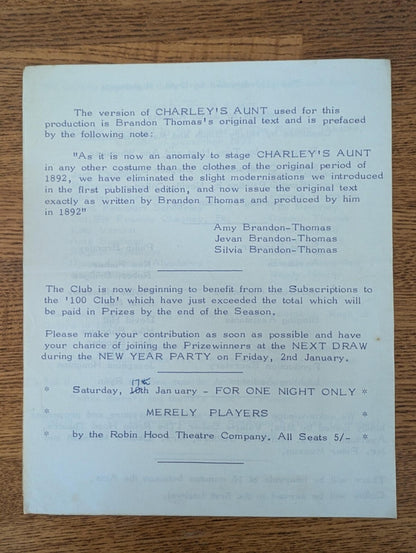 The version of CHARLEY'S AUNT used for this
production is Brandon Thomas's original text and is prefaced
by the following note:
"As it is now an anomaly to stage CHARLEY'S AUNT
in any other costume than the clothes of the original period of
1892, we have eliminated the slight modernisations we introduced
in the first published edition, and now issue the original text
exactly as written by Brandon Thomas and produced by him
in 1892"
Amy Brandon-Thomas
Jevan Brandon-Thomas
Silvia Brandon-Thomas
The Club is now beginning to benefit from the Subscriptions to
the '100 Club' which have just exceeded the total which will
be paid in Prizes by the end of the Season.
Please make your contribution as soon as possible and have
your chance of joining the Prizewinners at the NEXT DRAW
during the NEW YEAR PARTY on Friday, 2nd January.
17th
* Saturday, 10th January - FOR ONE NIGHT ONLY *
* MERELY PLAYERS *
* by the Robin Hood Theatre Company. All Seats 5/- *